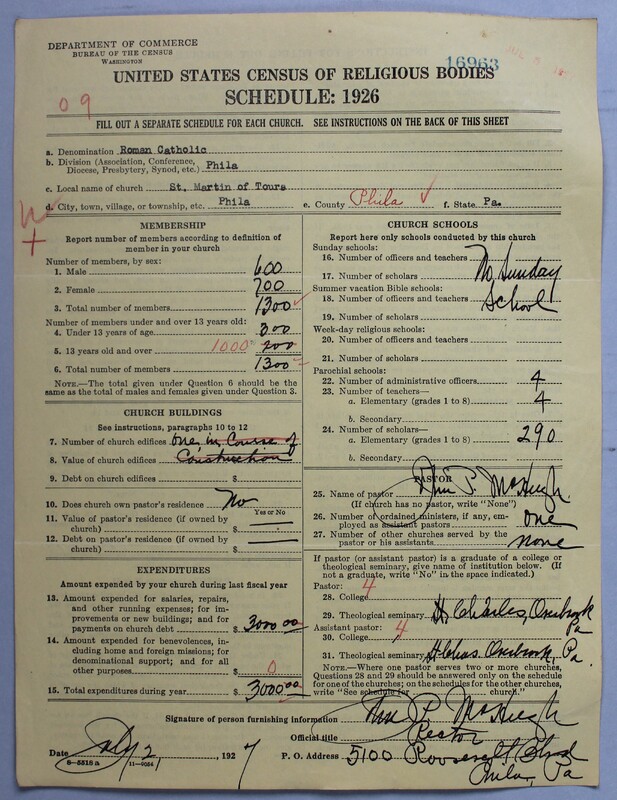 DEPARTMENT OF COMMERCE
BUREAU OF THE CENSUS
WASHINGTON
16963
UNITED STATES CENSUS OF RELIGIOUS BODIES
SCHEDULE: 1926
0 9
FILL OUT A SEPARATE SCHEDULE FOR EACH CHURCH. SEE INSTRUCTIONS ON THE BACK OF THIS SHEET
a. Denomination Roman Catholic
b. Division (Association, Conference, Diocese, Presbytery, Synod, etc.) Phila
c. Local name of church St. Martin of Tours
d. City, town, village, or township, etc. Phila e. County Phila f. State Pa.
MEMBERSHIP
Report number of members according to definition of
member in your church
Number of members, by sex:
1. Male 600
2. Female 700
3. Total number of members 1300
Number of members under and over 13 years old:
4. Under 13 years of age 300
5. 13 years old and over 1000
6. Total number of members 1300
NOTE.—The total given under Question 6 should be
same as the total of males and females given under Question 3.
CHURCH BUILDINGS
See instructions, paragraphs 10 to 12
7. Number of church edifices one in Course of
8. Value of church edifices Construction
9. Debt on church edifices $
10. Does church own pastor's residence No
Yes or No
11. Value of pastor's residence (if owned by
church) $
12. Debt on pastor's residence (if owned by
church) $
EXPENDITURES
Amount expended by your church during last fiscal year
13. Amount expended for salaries, repairs,
and other running expenses; for im-
provements or new buildings; and for
payments on church debt $ 3000 00
14. Amount expended for benevolences, in-
cluding home and foreign missions; for
denominational support; and for all
other purposes $ 0
15. Total expenditures during year $ 3000 00
CHURCH SCHOOLS
Report here only schools conducted by this church
Sunday schools:
16. Number of officers and teachers
17. Number of scholars No Sunday
Summer vacation Bible schools:
18. Number of officers and teachers School
19. Number of scholars
Week-day religious schools:
20. Number of officers and teachers
21. Number of scholars
Parochial schools:
22. Number of administrative officers 4
23. Number of teachers—
a. Elementary (grades 1 to 8) 4
b. Secondary
24. Number of scholars—
a. Elementary (grades 1 to 8) 290
b. Secondary
PASTOR
25. Name of pastor P. McHugh
(If church has no pastor, write "None")
26. Number of ordained ministers, if any, em-
ployed as assistant pastors one
27. Number of other churches served by the
pastor or his assistants none
If pastor (or assistant pastor) is a graduate of a college or
theological seminary, give name of institution below. (If
not a graduate, write "No" in the space indicated.)
Pastor:
28. College 4
29. Theological seminary St Charles, Overbrook Pa
Assistant pastor: 4
30. College
31. Theological seminary St Chas. Overbrook, Pa.
NOTE.—Where one pastor serves two or more churches,
Questions 28 and 29 should be answered only on the schedule
for one of the churches; on the schedules for the other churches,
write "See schedule for church."
Signature of person furnishing information P. McHugh
Official title Rector
Date July 2, 1927 P. O. Address 5100 Roosevelt Blvd
8-5518a 11-9054 Phila, Pa